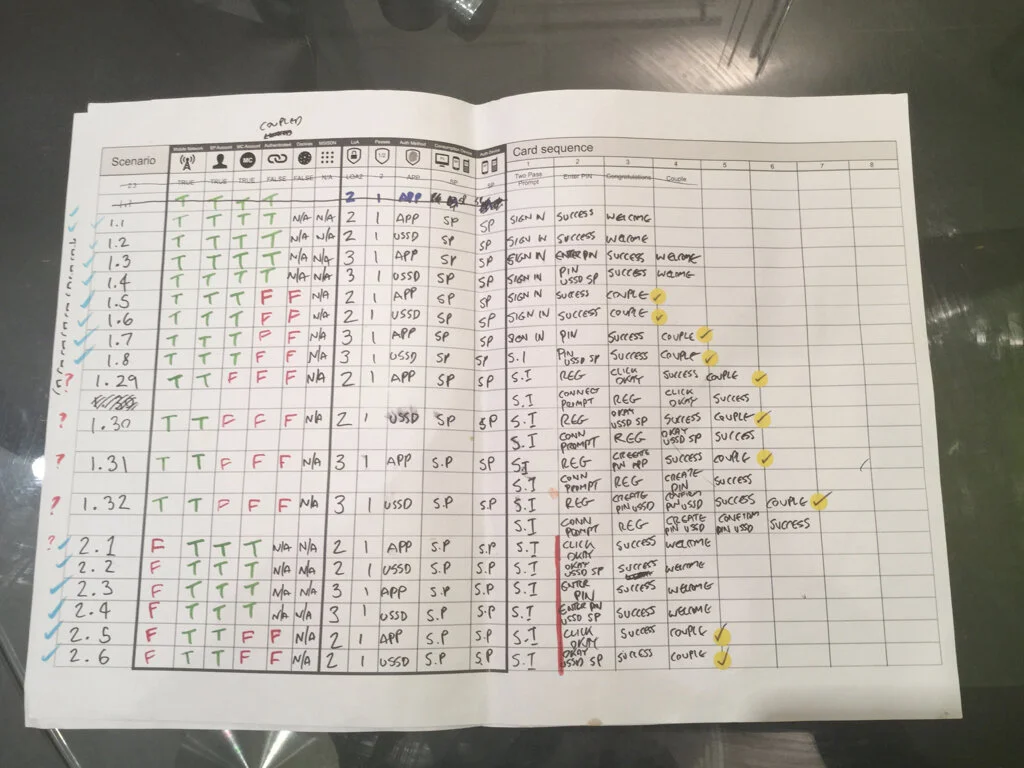 COUPLED
Scenario Mobile Network SP Account MC Account Authenticated Devices MSISDN LoA Passes Auth Method Consumption Device Auth Device Card sequence
MC 1/2 1 2 3 4 5 6 7 8
23 TRUE TRUE TRUE FALSE FALSE N/A LOA2 2 APP SP SP Two Pass Prompt Enter PIN Congratulations Couple
T T T T 2 1 APP
1.1 T T T T N/A N/A 2 1 APP SP SP SIGN IN SUCCESS WELCOME
1.2 T T T T N/A N/A 2 1 USSD SP SP SIGN IN SUCCESS WELCOME
1.3 T T T T N/A N/A 3 1 APP SP SP SIGN IN ENTER PIN SUCCESS WELCOME
1.4 T T T T N/A N/A 3 1 USSD SP SP SIGN IN PIN USSD SP SUCCESS WELCOME
1.5 T T T F F N/A 2 1 APP SP SP SIGN IN SUCCESS COUPLE ✓
1.6 T T T F F N/A 2 1 USSD SP SP SIGN IN SUCCESS COUPLE ✓
1.7 T T T F F N/A 3 1 APP SP SP SIGN IN PIN SUCCESS COUPLE ✓
1.8 T T T F F N/A 3 1 USSD SP SP S.I PIN USSD SP SUCCESS COUPLE ✓
? 1.29 T T F F F N/A 2 1 APP SP SP S.I REG CLICK OKAY SUCCESS COUPLE ✓
S.I CONNECT PROMPT REG CLICK OKAY SUCCESS
? 1.30 T T F F F N/A 2 1 USSD SP SP S.I REG OKAY USSD SP SUCCESS COUPLE ✓
S.I CONN PROMPT REG OKAY USSD SP SUCCESS
? 1.31 T T F F F N/A 3 1 APP S.P SP S.I REG CREATE PIN APP SUCCESS COUPLE ✓
S.I CONN PROMPT REG CREATE PIN SUCCESS
? 1.32 T T F F F N/A 3 1 USSD S.P S.P S.I REG CREATE PIN USSD CONFIRM PIN USSD SUCCESS COUPLE ✓
S.I CONN PROMPT REG CREATE PIN USSD CONFIRM PIN USSD SUCCESS
? 2.1 F T T T N/A N/A 2 1 APP S.P S.P S.I CLICK OKAY SUCCESS WELCOME
2.2 F T T T N/A N/A 2 1 USSD S.P S.P S.I OKAY USSD SP SUCCESS WELCOME
2.3 F T T T N/A N/A 3 1 APP S.P S.P S.I ENTER PIN SUCCESS WELCOME
2.4 F T T T N/A N/A 3 1 USSD S.P S.P S.I ENTER PIN USSD SP SUCCESS WELCOME
2.5 F T T F F N/A 2 1 APP S.P S.P S.I CLICK OKAY SUCCESS COUPLE ✓
2.6 F T T F F N/A 2 1 USSD S.P S.P S.I OKAY USSD SP SUCCESS COUPLE ✓